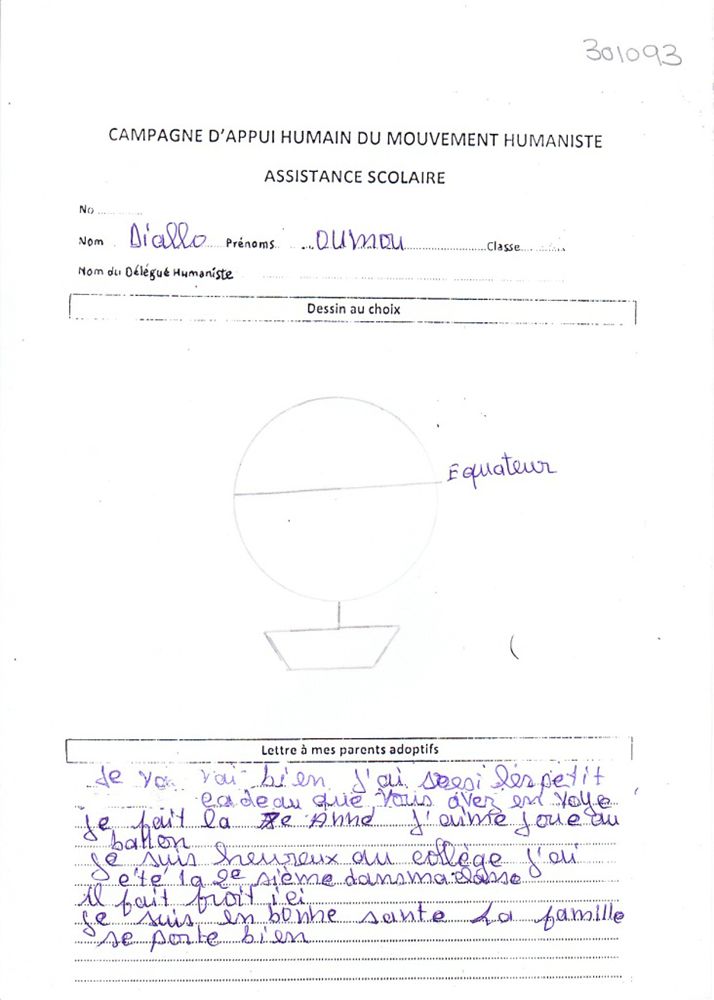 301093
CAMPAGNE D'APPUI HUMAIN DU MOUVEMENT HUMANISTE
ASSISTANCE SCOLAIRE
No
Nom Diallo Prénoms OUMOU Classe
Nom du Délégué Humaniste
Dessin au choix
Equateur
Lettre à mes parents adoptifs
Je vai bien j'ai les petit
cadeau que vous aver en voye
je fait la Anné j'aime joue au
ballon
je suis heureux au collège j'ai
eté la 2e sième dans ma classe
il fait froit ici
je suis en bonne sante La famille
se porte bien